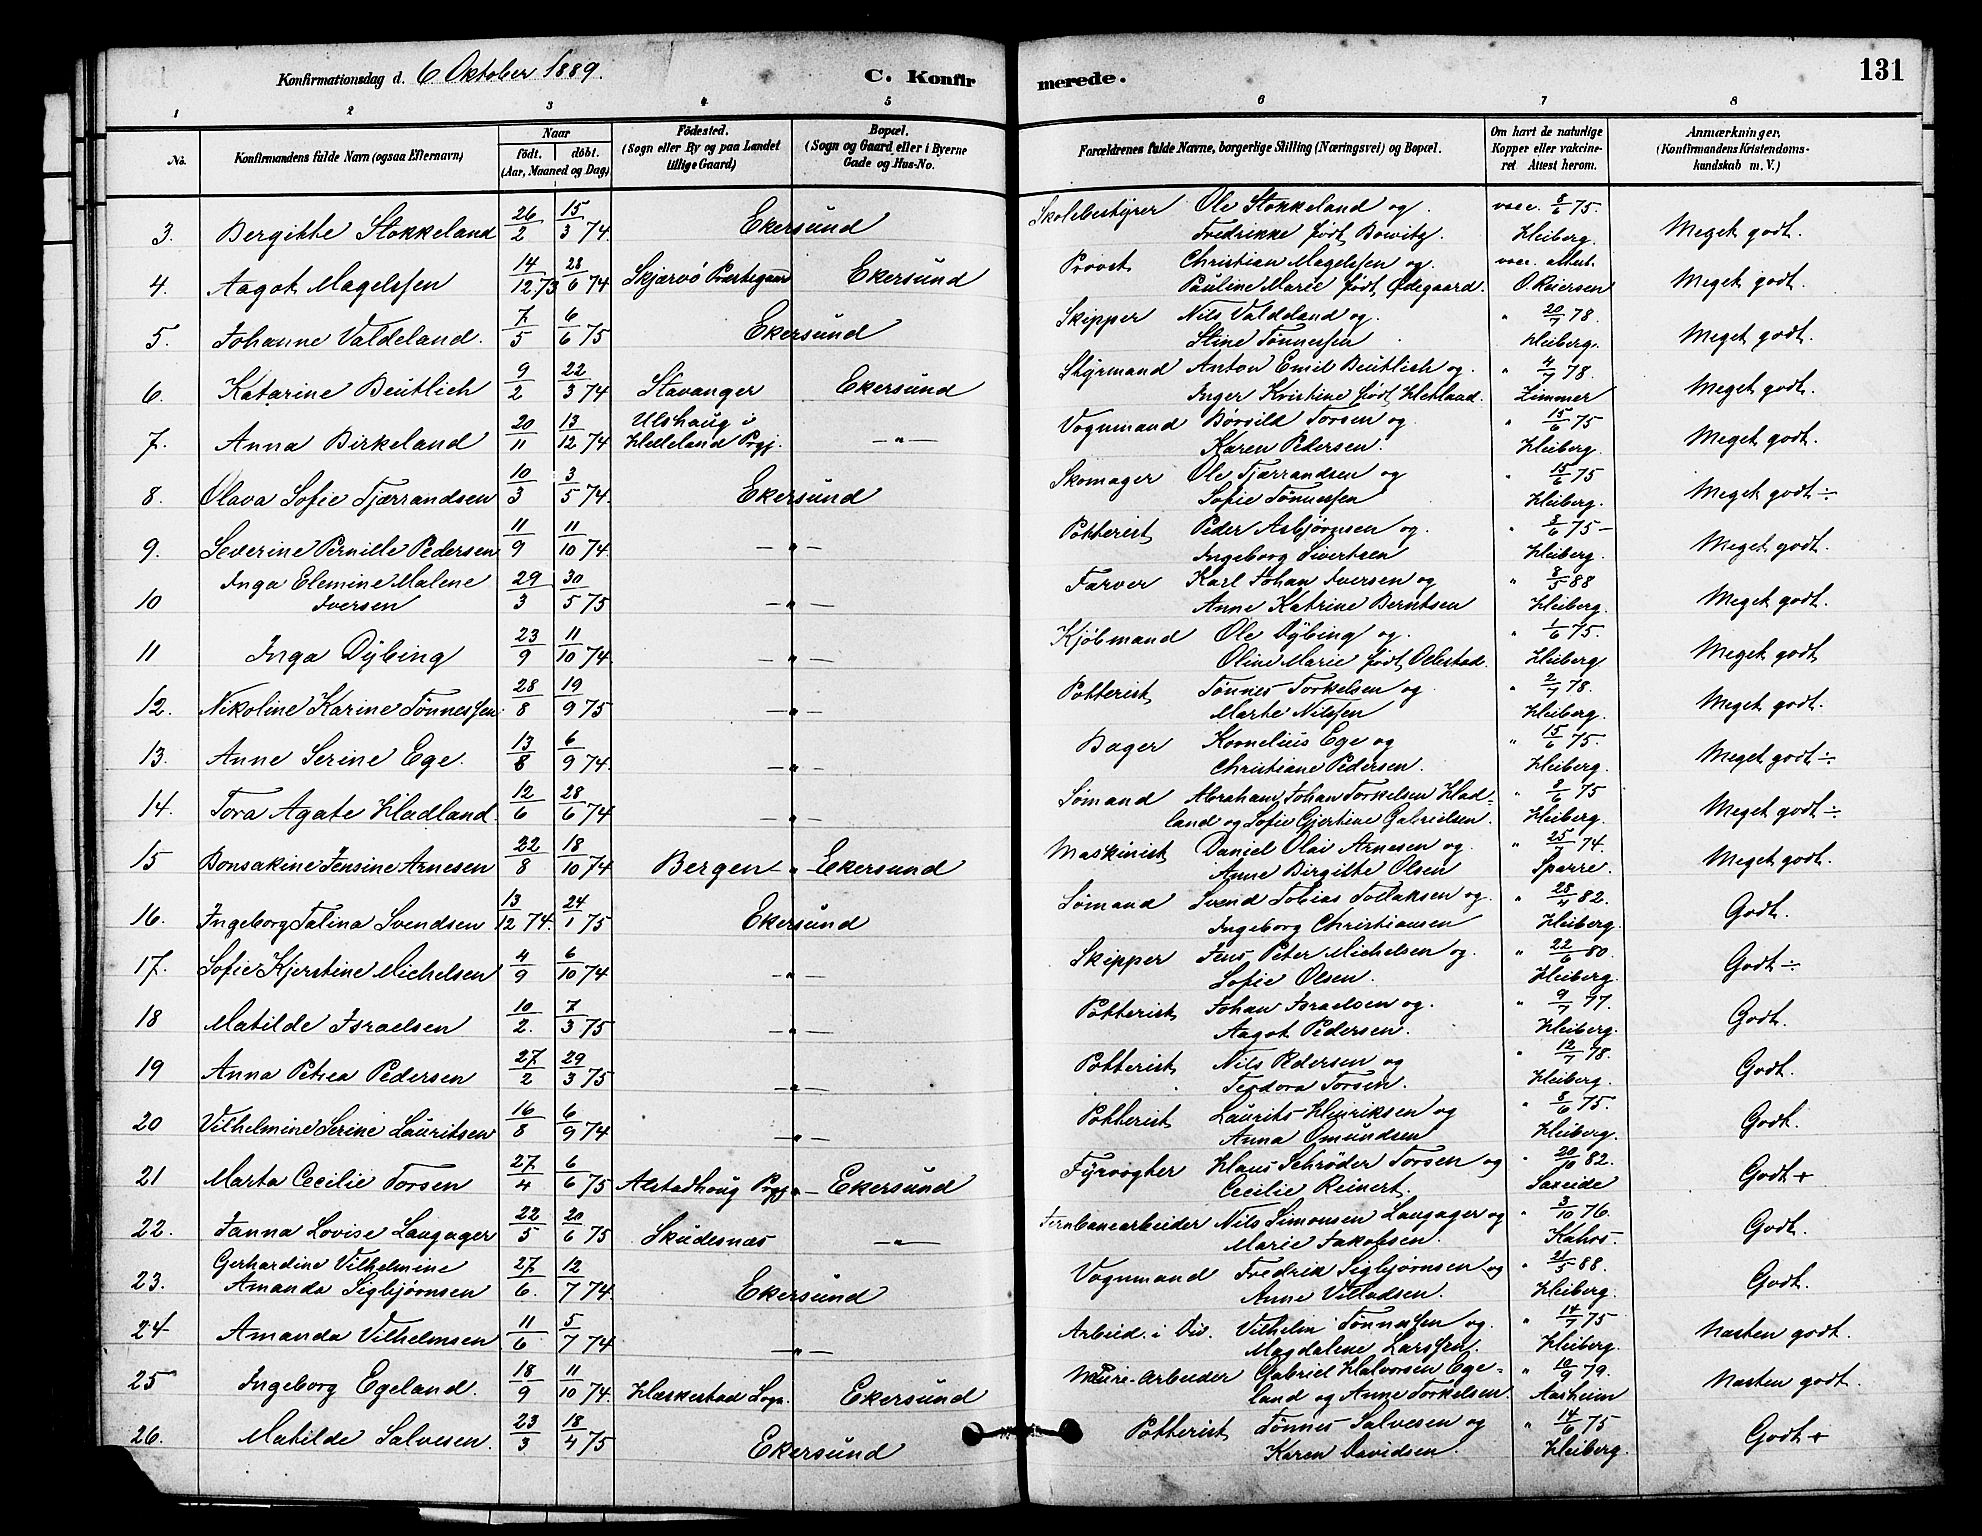 Konfirmationsdag d. 6 Oktober 1889.
C. Konfirmerede.
131
1 2 3 4 5 6 7 8
No.
Konfirmandens fulde Navn (ogsaa Efternavn)
Naar
födt. döbt.
(Aar, Maaned og Dag)
Födested.
(Sogn eller By og paa Landet
tillige Gaard)
Bopæl.
(Sogn og Gaard eller i Byerne
Gade og Hus-No.
Forældrenes fulde Navne, borgerlige Stilling (Næringsvei) og Bopæl.
Om havt de naturlige
Kopper eller vakcine-
ret Attest herom.
Anmærkninger.
(Konfirmandens Kristendoms-
kundskab m. V.)
3. Bergitte Stokkeland 26/2 15/3 74. Ekersund Skolebestyrer Ole Stokkeland og vacc. 8/6 75. Meget godt.
Fredrikke født Bowitz. Heiberg.
4. Aagot Magelssen 14/12 73 28/6 74 Skjærvö Præstegaard Ekersund Provst Christian Magelssen og vacc. attest. Meget godt.
Pauline Marie født Ødegaard. O. Reiersen
5. Johanne Valdeland. 7/5 6/6 75 Ekersund Skipper Nils Valdeland og " 20/7 78. Meget godt.
Stine Tönnessen Heiberg.
6. Katarine Beutlich 9/2 22/3 74 Stavanger Ekersund Styrmand Anton Emil Beutlich og " 4/7 78. Meget godt.
Inger Kristine født Hetland. Zimmer
7. Anna Birkeland 20/11 13/12 74 Ulshaug i
Helleland Prgj. — " — Vognmand Børsild Torsen og " 15/6 75 Meget godt.
Karen Pedersen. Heiberg.
8. Olava Sofie Tjærrandsen 10/3 3/5 74. Ekersund Skomager Ole Tjærrandsen og " 15/6 75 Meget godt ÷
Sofie Tönnessen Heiberg.
9. Severine Pernille Pedersen 11/9 11/10 74. — " — Potterist Peder Asbjørnsen og " 8/6 75 — Meget godt.
Ingeborg Sivertsen Heiberg.
10 Inga Elemine Malene
Iversen 29/3 30/5 75 — " — Farver Karl Johan Iversen og " 8/5 88 Meget godt.
Anne Katrine Berntsen Heiberg.
11 Inga Dybing 23/9 11/10 74. — " — Kjøbmand Ole Dybing og " 1/6 75. Meget godt
Oline Marie født Ollestad. Heiberg
12. Nikoline Karine Tönnessen 28/8 19/9 75 — " — Potterist Tønnes Torkelsen og " 2/7 78. Meget godt.
Marte Nilssen Heiberg.
13. Anne Serine Ege. 13/8 6/9 74. — " — Bager Kornelius Ege og " 15/6 75. Meget godt ÷
Christiane Pedersen. Heiberg.
14. Tora Agate Hadland. 12/6 28/6 74 — " — Sømand Abraham Johan Torkelsen Had- " 8/6 75 Meget godt ÷
land og Sofie Gjertine Gabrielsen. Heiberg.
15 Bonsakine Jensine Arnesen 22/8 18/10 74 Bergen — " — Ekersund Maskinist Daniel Olai Arnesen og " 25/7 74. Meget godt.
Anne Birgitte Olsen Sparre.
16. Ingeborg Talina Svendsen 13/12 74. 24/1 75 Ekersund Sømand Svend Tobias Tollaksen og " 28/4 82. Godt.
Ingeborg Christiansen Heiberg.
17. Sofie Kjerstine Michelsen 4/9 6/10 74 — " — Skipper Jens Peter Michelsen og " 22/6 80. Godt ÷
Sofie Olsen. Heiberg.
18 Matilde Israelsen 10/2. 7/3 75 — " — Potterist Johan Israelsen og " 9/7 77. Godt.
Aagot Pedersen. Heiberg.
19 Anna Petrea Pedersen 27/2 29/3 75 — " — Potterist Nils Pedersen og " 12/7 78. Godt.
Teodora Torsen. Heiberg.
20 Vilhelmine Serine Lauritsen 16/8 6/9 74 — " — Potterist Laurits Henriksen og " 8/6 75. Godt.
Anna Omundsen Heiberg.
21 Marta Cecilie Torsen 27/4 6/6 75 Alstadhoug Prgj. — Ekersund Fyrvogter Klaus Schrøder Torsen og " 20/10 82. Godt +
Cecilie Reinert. Saxeide
22. Janna Lovise Laugager 22/5 20/6 75 Skudesnæs — " — Jernbanearbeider Nils Simonsen Laugager og " 3/10 76. Godt.
Marie Jakobsen.
23. Gerhardine Vilhelmine
Amanda Sigbjørnsen 27/6. 12/7 74. Ekersund Vognmand Fredrik Sigbjørnsen og " 21/5 88. Godt.
Anne Villadsen. Heiberg.
24 Amanda Vilhelmsen 11/6 5/7 74 — " — Arbeid. i Div. Vilhelm Tønnessen og " 14/7 75 Næsten godt.
Magdalene Larssen. Heiberg.
25 Ingeborg Egeland. 18/9 11/10 74. Heskestad Sogn. Ekersund Mure-Arbeider Gabriel Halvorsen Ege- " 10/9 79. Næsten godt.
land og Anne Torkelsen. Aarheim
26. Matilde Salvesen. 23/3 18/4 75 Ekersund Potterist Tønnes Salvesen og " 14/6 75 Godt +
Karen Davidsen. Heiberg.